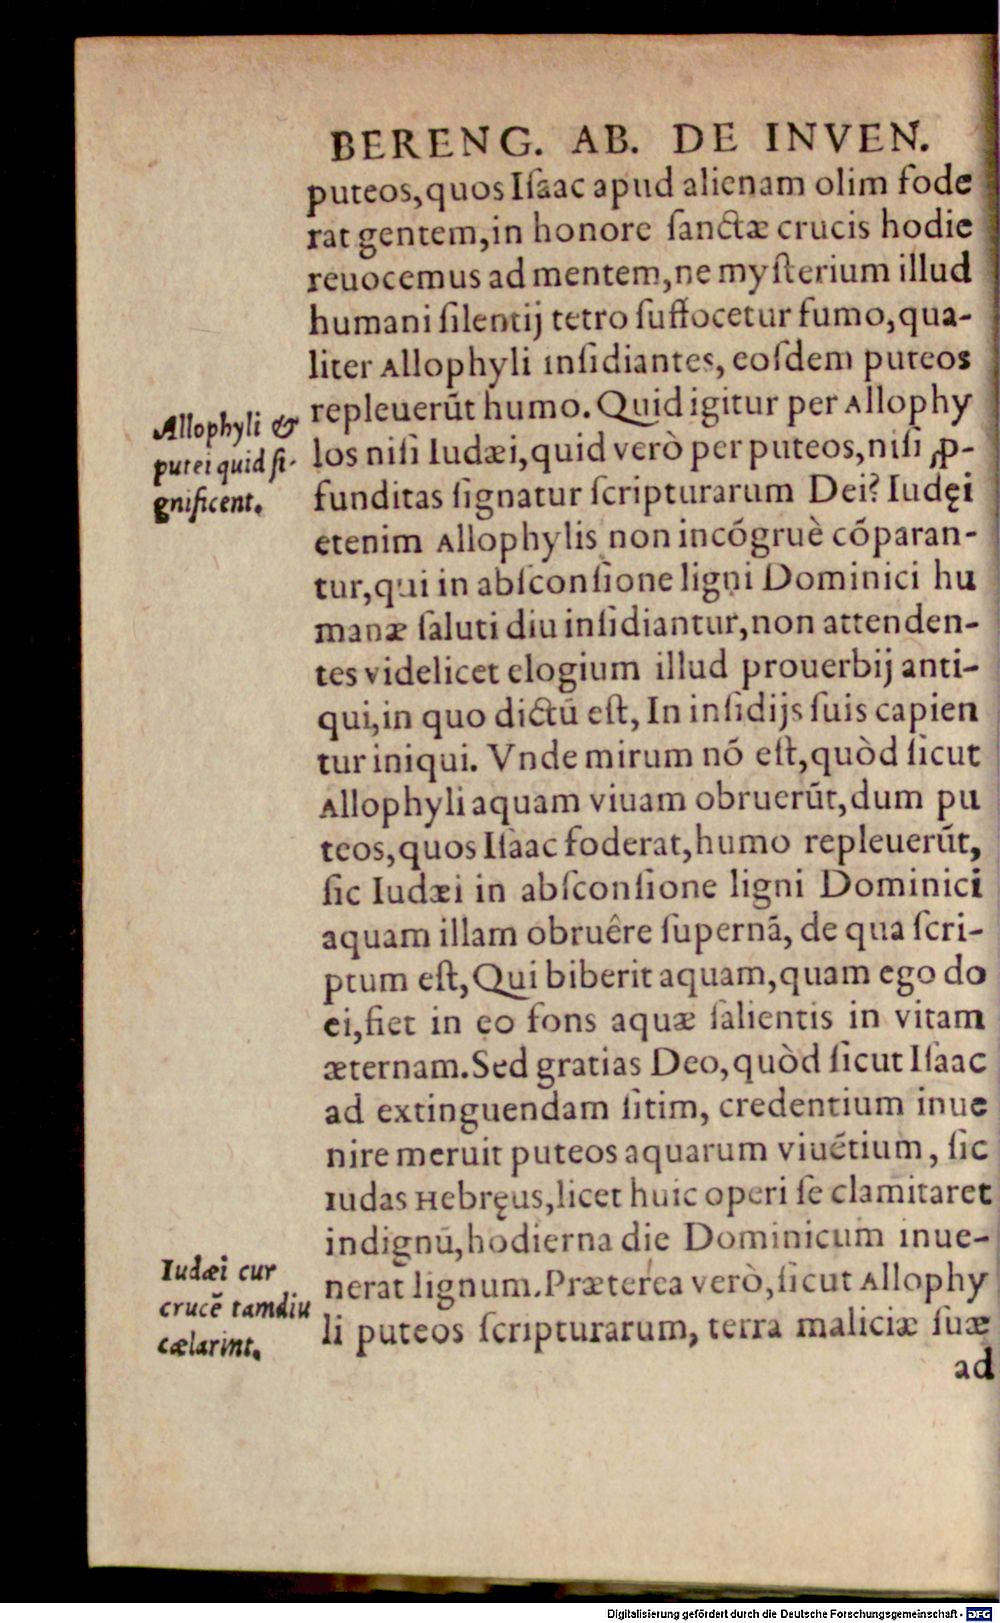 BERENG. AB. DE INVEN.
puteos,quos Iſaac apud alienam olim fode
rat gentem,in honore ſanctæ crucis hodie
reuocemus ad mentem,ne myſterium illud
humani ſilentij tetro ſuffocetur fumo,qua-
liter Allophyli inſidiantes, eoſdem puteos
repleuerūt humo. Quid igitur per Allophy
los niſi Iudæi,quid verò per puteos, niſi ꝓ-
funditas ſignatur ſcripturarum Dei? Iudęi
etenim Allophylis non incōgruè cōparan-
tur,qui in abſconſione ligni Dominici hu
manæ ſaluti diu inſidiantur,non attenden-
tes videlicet elogium illud prouerbij anti-
qui,in quo dictū eſt, In inſidijs ſuis capien
tur iniqui. Vnde mirum nō eſt,quòd ſicut
Allophyli aquam viuam obruerūt,dum pu
teos,quos Iſaac foderat,humo repleuerūt,
ſic Iudæi in abſconſione ligni Dominici
aquam illam obruêre ſupernā, de qua ſcri-
ptum eſt, Qui biberit aquam,quam ego do
ei,fiet in eo fons aquæ ſalientis in vitam
æternam. Sed gratias Deo,quòd ſicut Iſaac
ad extinguendam ſitim, credentium inue
nire meruit puteos aquarum viuētium, ſic
Iudas Hebręus,licet huic operi ſe clamitaret
indignū,hodierna die Dominicum inue-
nerat lignum. Præterea verò,ſicut Allophy
li puteos ſcripturarum, terra maliciæ ſuæ
ad
Allophyli &
putei quid ſi-
gnificent.
Iudæi cur
crucē tamdiu
cælarint.
Digitalisierung gefördert durch die Deutsche Forschungsgemeinschaft - DFG